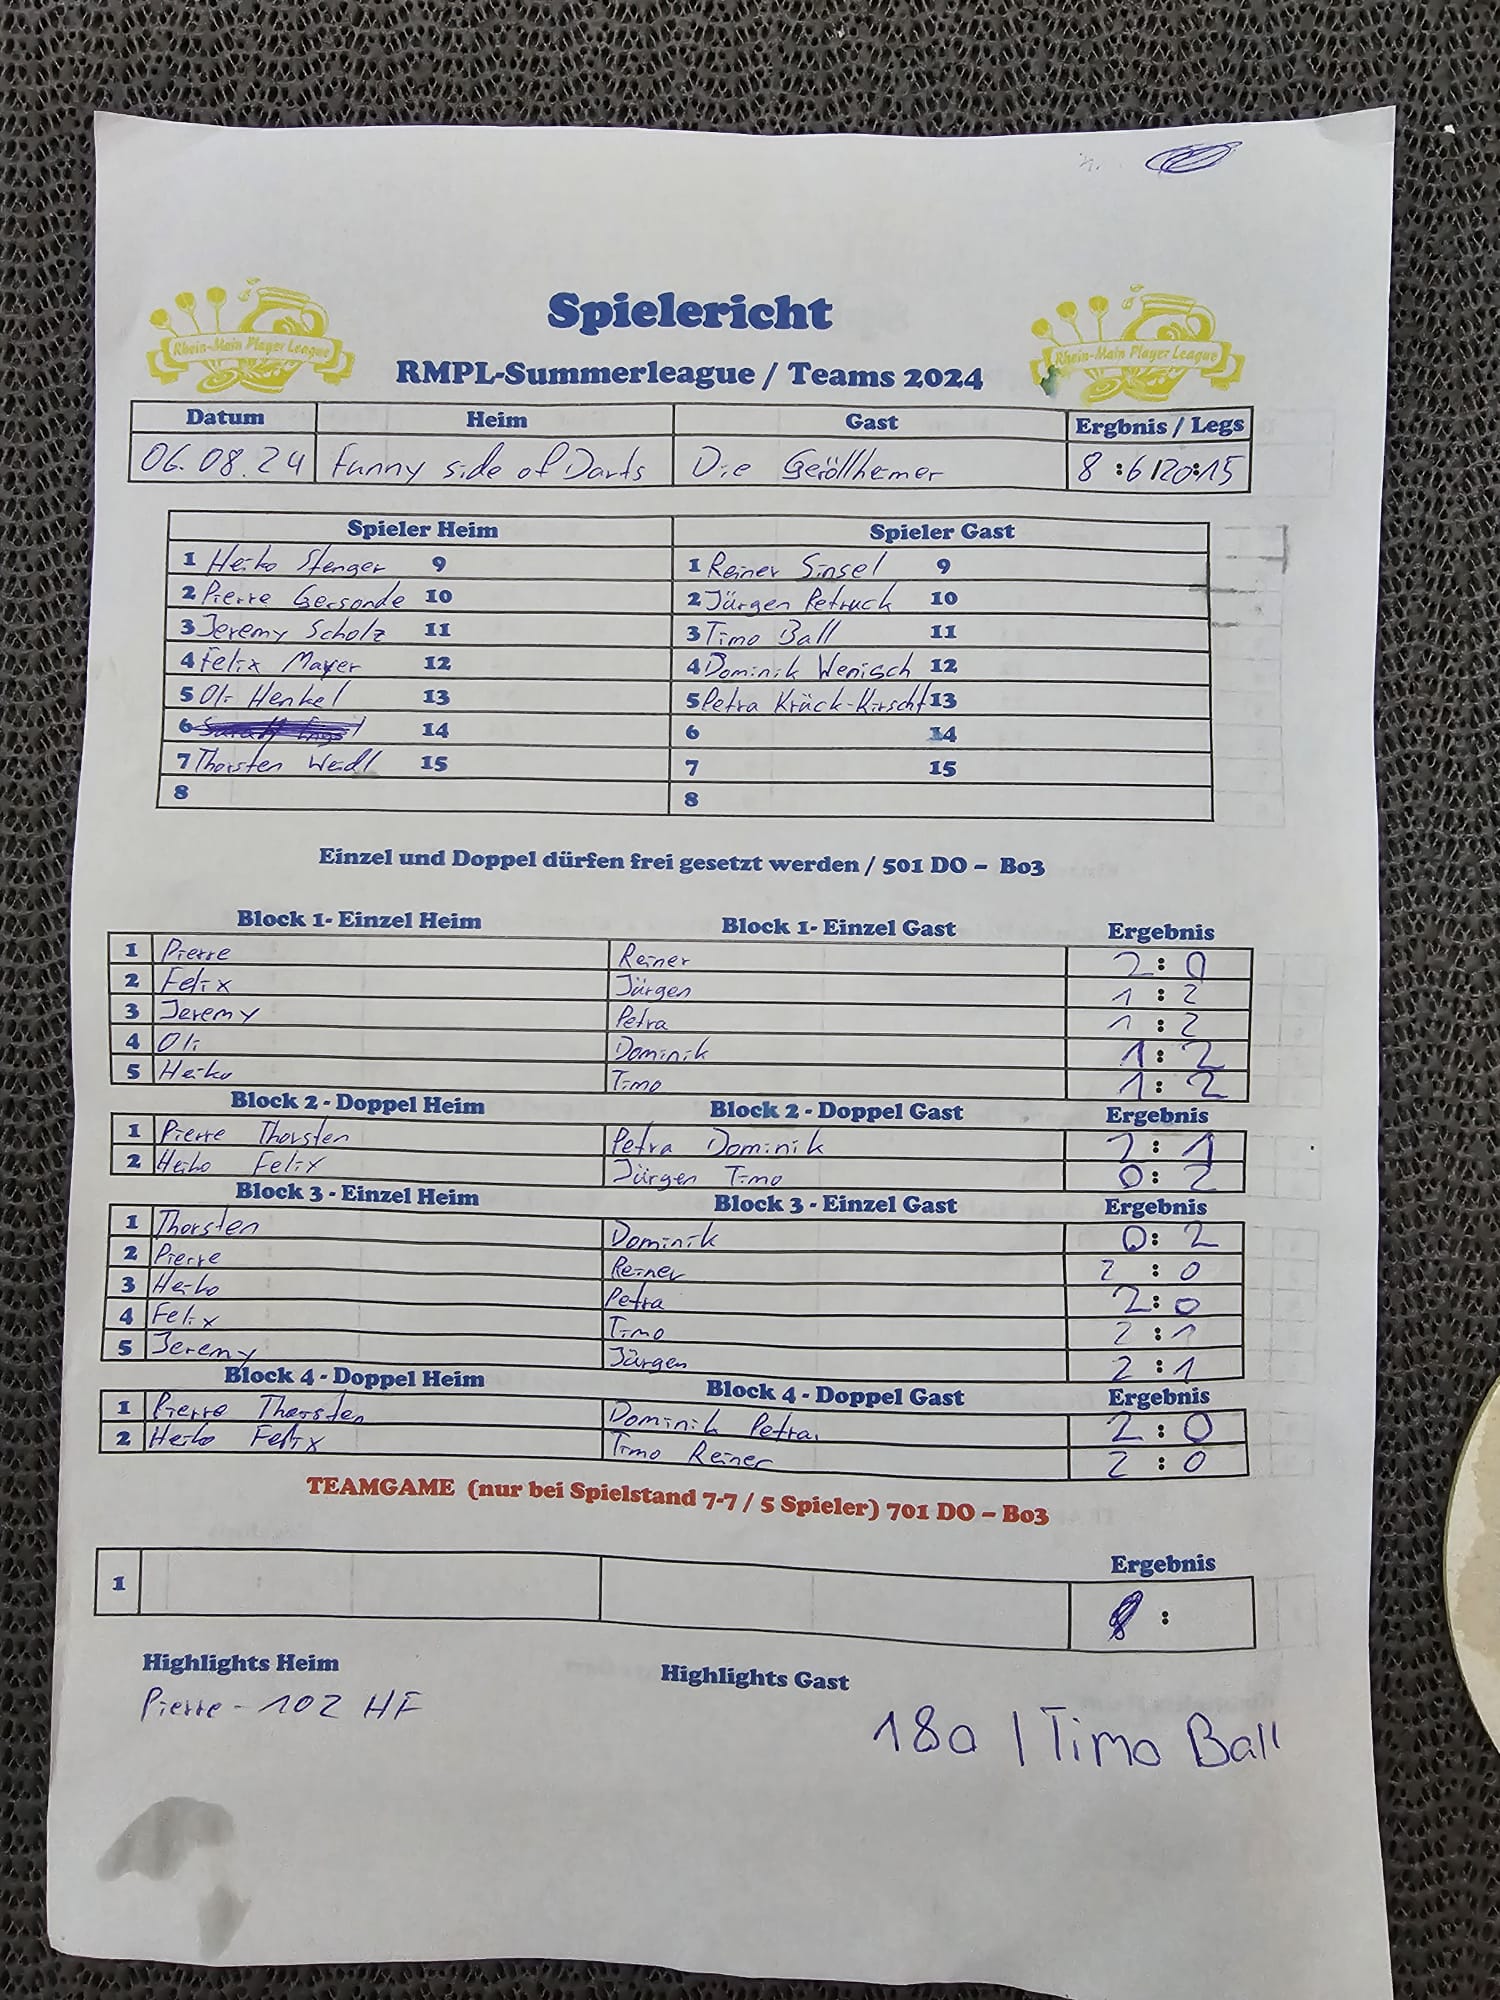 Spielericht
Rhein-Main Player League
Rhein-Main Player League
RMPL-Summerleague / Teams 2024
Datum Heim Gast Ergbnis / Legs
06.08.24 Funny side of Darts Die Geröllhemer 8 :6/20:15
Spieler Heim Spieler Gast
1 Heiko Stenger 9 1 Reiner Sinsel 9
2 Pierre Gersonde 10 2 Jürgen Petruck 10
3 Jeremy Scholz 11 3 Timo Ball 11
4 Felix Mayer 12 4 Dominik Wenisch 12
5 Oli Henkel 13 5 Petra Krück-Kirscht 13
6 14 6 14
7 Thorsten Weidl 15 7 15
8 8
Einzel und Doppel dürfen frei gesetzt werden / 501 DO – Bo3
Block 1- Einzel Heim Block 1- Einzel Gast Ergebnis
1 Pierre Reiner 2 : 0
2 Felix Jürgen 1 : 2
3 Jeremy Petra 1 : 2
4 Oli Dominik 1 : 2
5 Heiko Timo 1 : 2
Block 2 - Doppel Heim Block 2 - Doppel Gast Ergebnis
1 Pierre Thorsten Petra Dominik 2 : 1
2 Heiko Felix Jürgen Timo 0 : 2
Block 3 - Einzel Heim Block 3 - Einzel Gast Ergebnis
1 Thorsten Dominik 0 : 2
2 Pierre Reiner 2 : 0
3 Heiko Petra 2 : 0
4 Felix Timo 2 : 1
5 Jeremy Jürgen 2 : 1
Block 4 - Doppel Heim Block 4 - Doppel Gast Ergebnis
1 Pierre Thorsten Dominik Petra 2 : 0
2 Heiko Felix Timo Reiner 2 : 0
TEAMGAME (nur bei Spielstand 7-7 / 5 Spieler) 701 DO – Bo3
Ergebnis
1 :
Highlights Heim Highlights Gast
Pierre - 102 HF
180 / Timo Ball